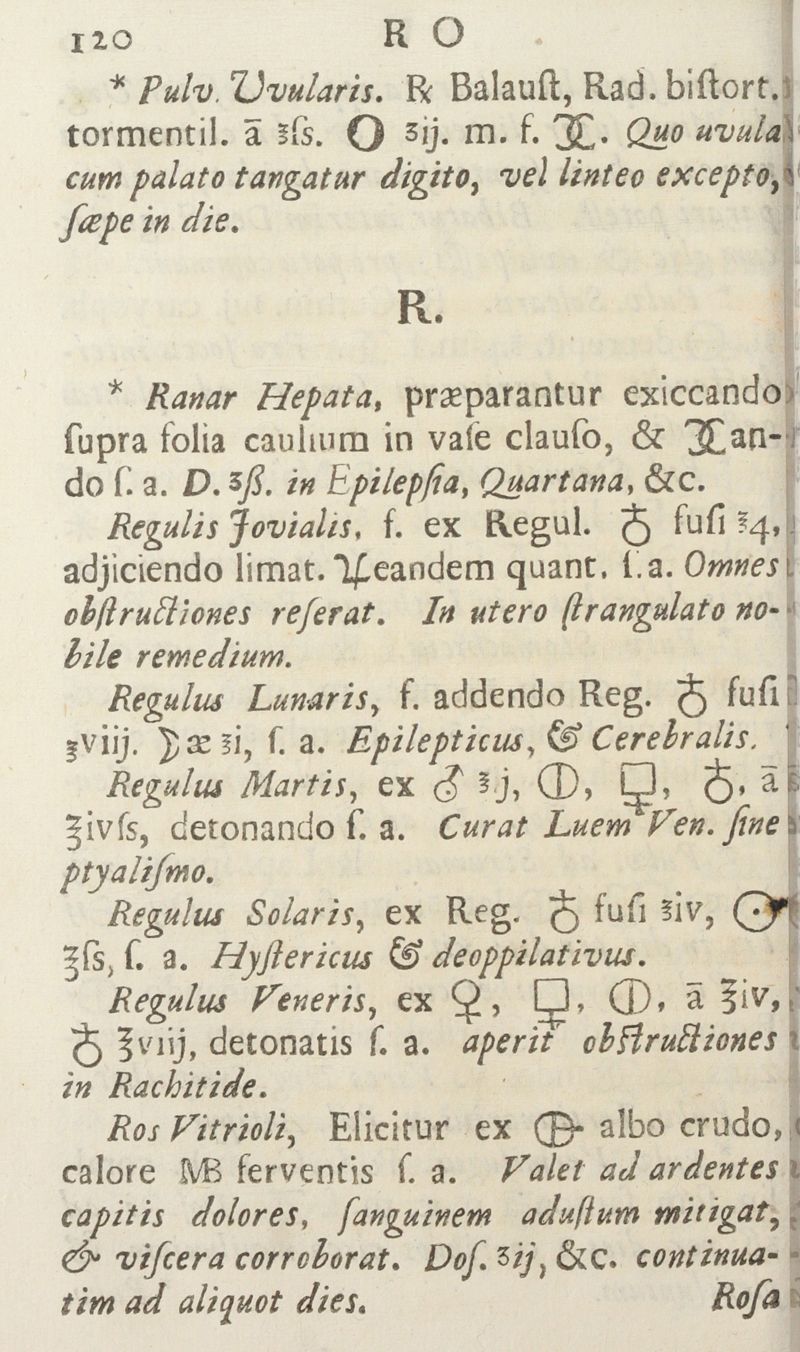 120 R O
* Pulv. Uvularis. ℞ Balauſt, Rad. biſtort.
tormentil. ā ℥ſs. 🜔 ʒij. m. f. 🜛. Quo uvula
cum palato tangatur digito, vel linteo excepto,
ſæpe in die.
R.
* Ranar Hepata, præparantur exiccando
ſupra folia caulium in vaſe clauſo, & an-
do ſ. a. D. ʒß. in Epilepſia, Quartana, &c.
Regulis Jovialis, f. ex Regul. ♁ fuſi ℥4,
adjiciendo limat. ♃eandem quant. ſ. a. Omnes
obſtructiones reſerat. In utero ſtrangulato no-
bile remedium.
Regulus Lunaris, f. addendo Reg. ♁ fuſi
℥viij. ☽æ ℥i, ſ. a. Epilepticus, & Cerebralis.
Regulus Martis, ex ♂ ℥j, 🜕, 🜿, ♁, ā
℥ivſs, detonando ſ. a. Curat Luem Ven. ſine
ptyaliſmo.
Regulus Solaris, ex Reg. ♁ fuſi ℥iv, ☉
℥ſs, ſ. a. Hyſtericus & deoppilativus.
Regulus Veneris, ex ♀, 🜿, 🜕, ā ℥iv,
♁ ℥viij, detonatis ſ. a. aperit obſtructiones
in Rachitide.
Ros Vitrioli, Elicitur ex 🜖 albo crudo,
calore MB ferventis ſ. a. Valet ad ardentes
capitis dolores, ſanguinem aduſtum mitigat,
& viſcera corroborat. Doſ. ʒij, &c. continua-
tim ad aliquot dies. Roſa